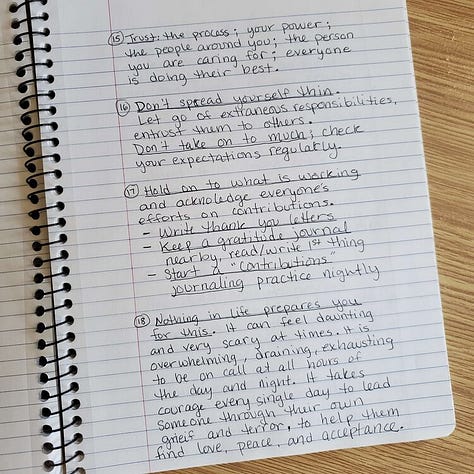 15 Trust: the process; your power;
the people around you; the person
you are caring for; everyone
is doing their best.
16 Don't spread yourself thin.
Let go of extraneous responsibilities,
entrust them to others.
Don't take on to much; check
your expectations regularly.
17 Hold on to what is working
and acknoledge everyone's
efforts on contributions.
- Write thank you letters
- Keep a gratitude journal
nearby, read/write 1st thing
- Start a "Contributions"
journaling practice nightly
18 Nothing in life prepares you
for this. It can feel daunting
and very scary at times. It is
overwhelming, draining, exhausting
to be on call at all hours of
the day and night. It takes
courage every single day to lead
someone through their own
grief and terror, to help them
find love, peace, and acceptance.